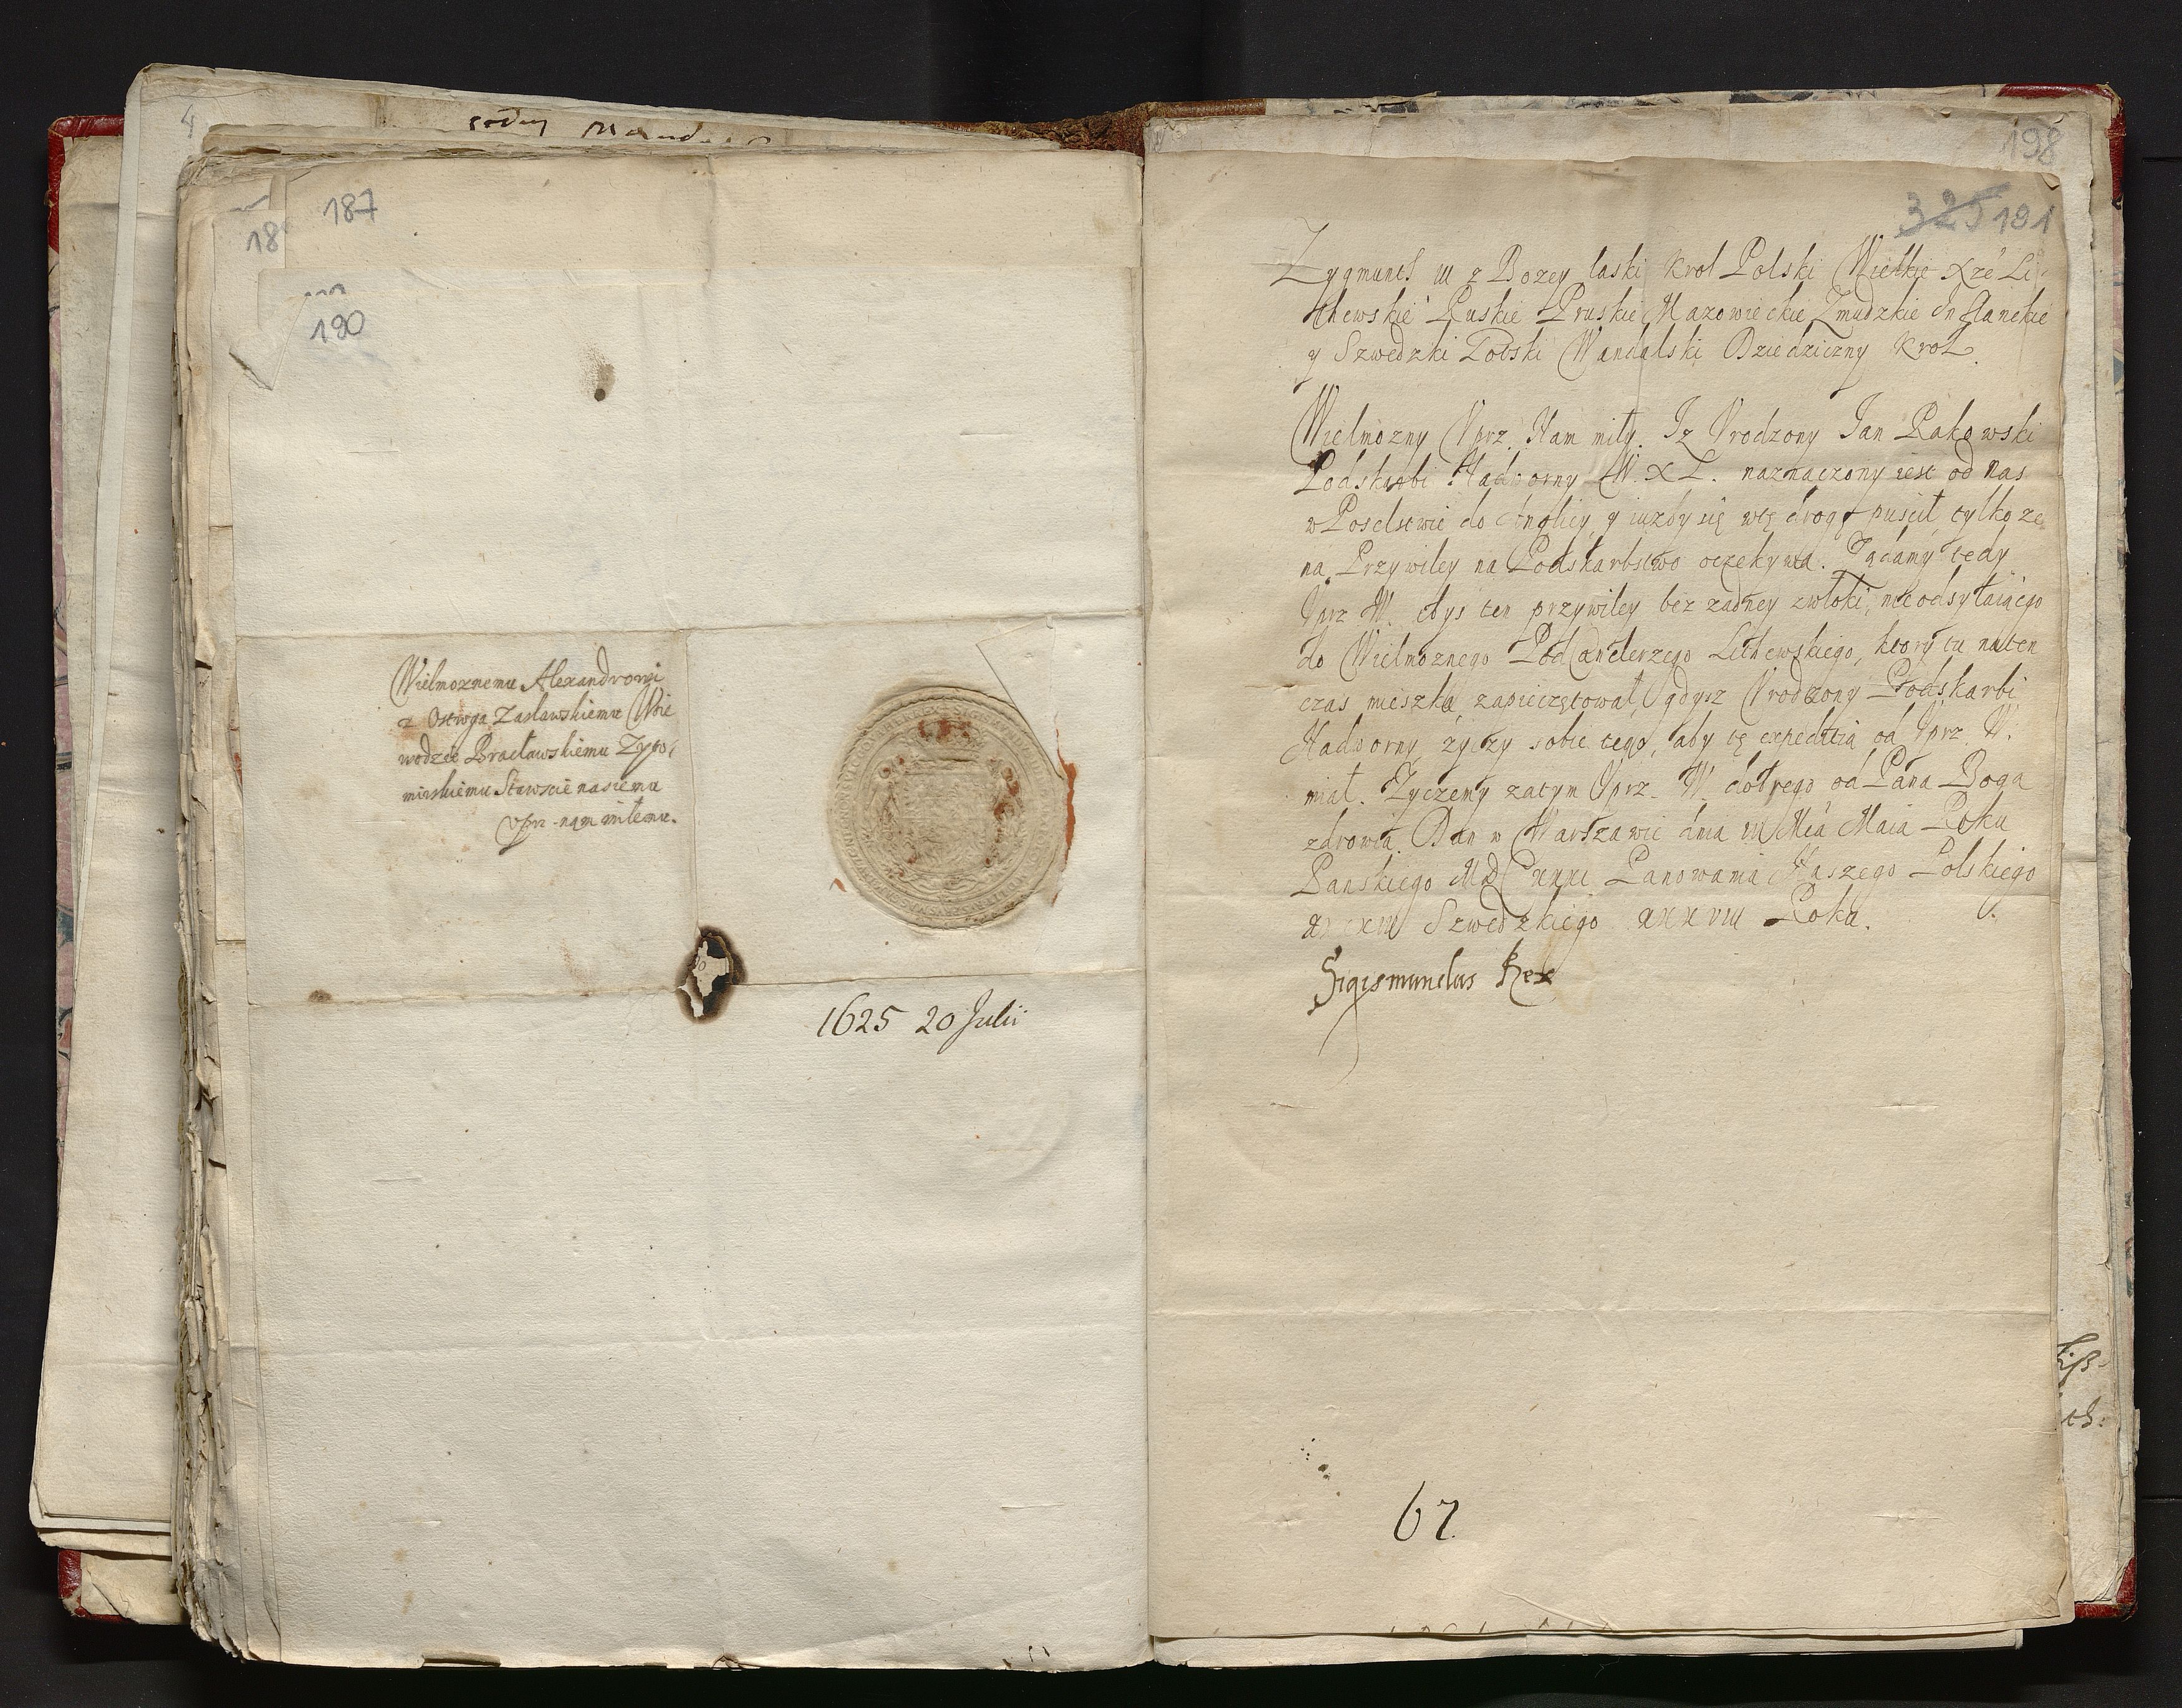 4
187
18
190
Wielmoznemu Alexandrowi
z Ostroga Zasławskiemu Woie
wodzie Bracławskiemu Zyto,
mirskiemu Staroscie nasze mu
vprz. nam miłemu.
1625 20 Julii
198
325 191
Zygmunt III z Bozey łaski Krol Polski Wielkie Xże Li-
thewskie Ruskie Pruskie Mazowieckie Zmudzkie Inflanckie
y Szwedzki Gotski Wandalski Dziedziczny Krol.
Wielmozny Vprz. Nam miły. Iz Vrodzony Jan Rakowski
Podskarbi Nadworny W. X L. naznaczony iest od nas
w Poselstwie do Angliey y iuzby się w tę drogę puscił tylko ze
na Przywiley na Podskarbstwo oczekywa. Ządamy tedy
Vprz W. abys ten przywiley bez zadney zwłoki, nieodsyłaiącego
do Wielmoznego PodCanclerzego Lithewskiego, ktory tu na ten
czas mieszka zapieczętował gdysz Vrodzony Podskarbi
Nadworny zyczy sobie tego, aby tę expeditią od Vprz. W.
miał. Zyczemy zatym Vprz. W. dobrego od Pana Boga
zdrowia. Dan w Warszawie dnia Mca Maia Roku
Panskiego Panowania Naszego Polskiego
Szwedzkiego xxxviii Roku.
Sigismundus Rex
67